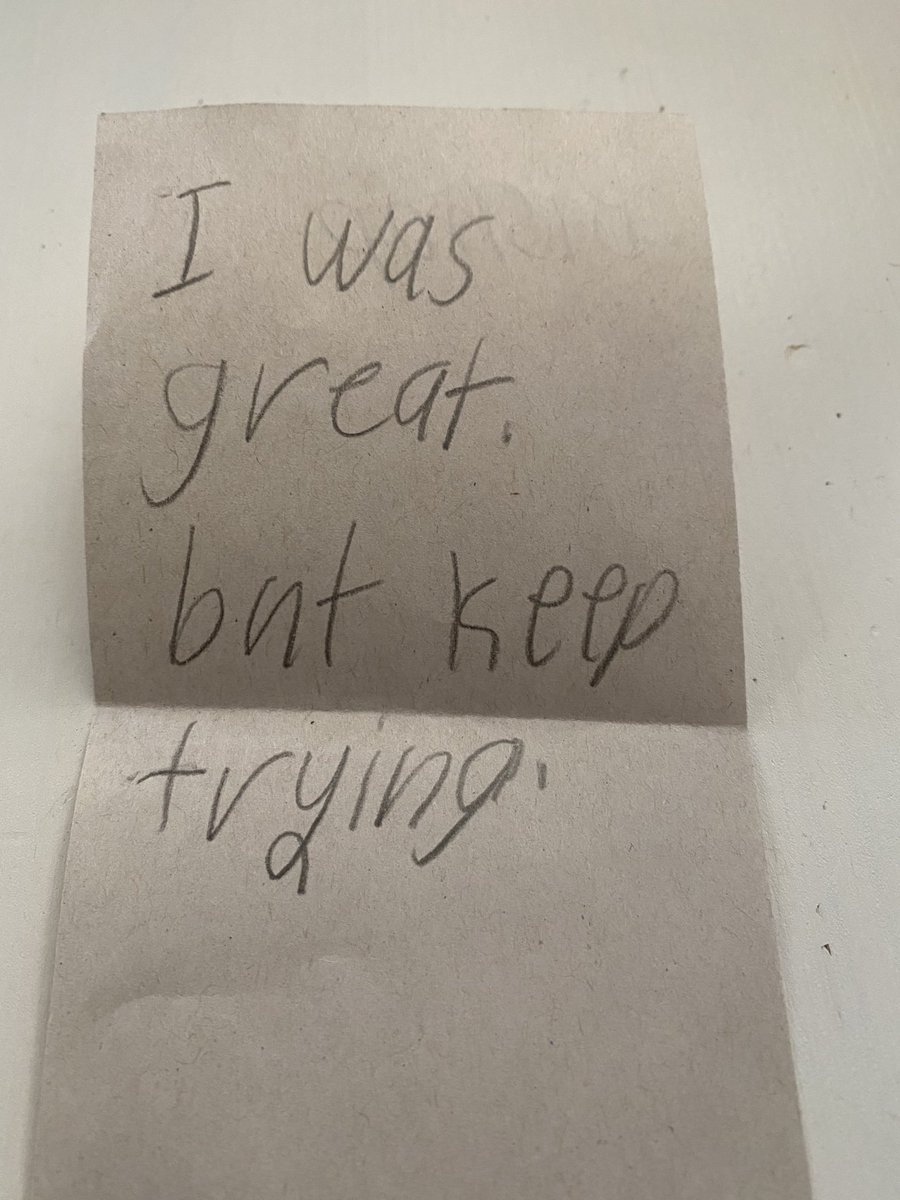 I was
great.
but keep
trying.